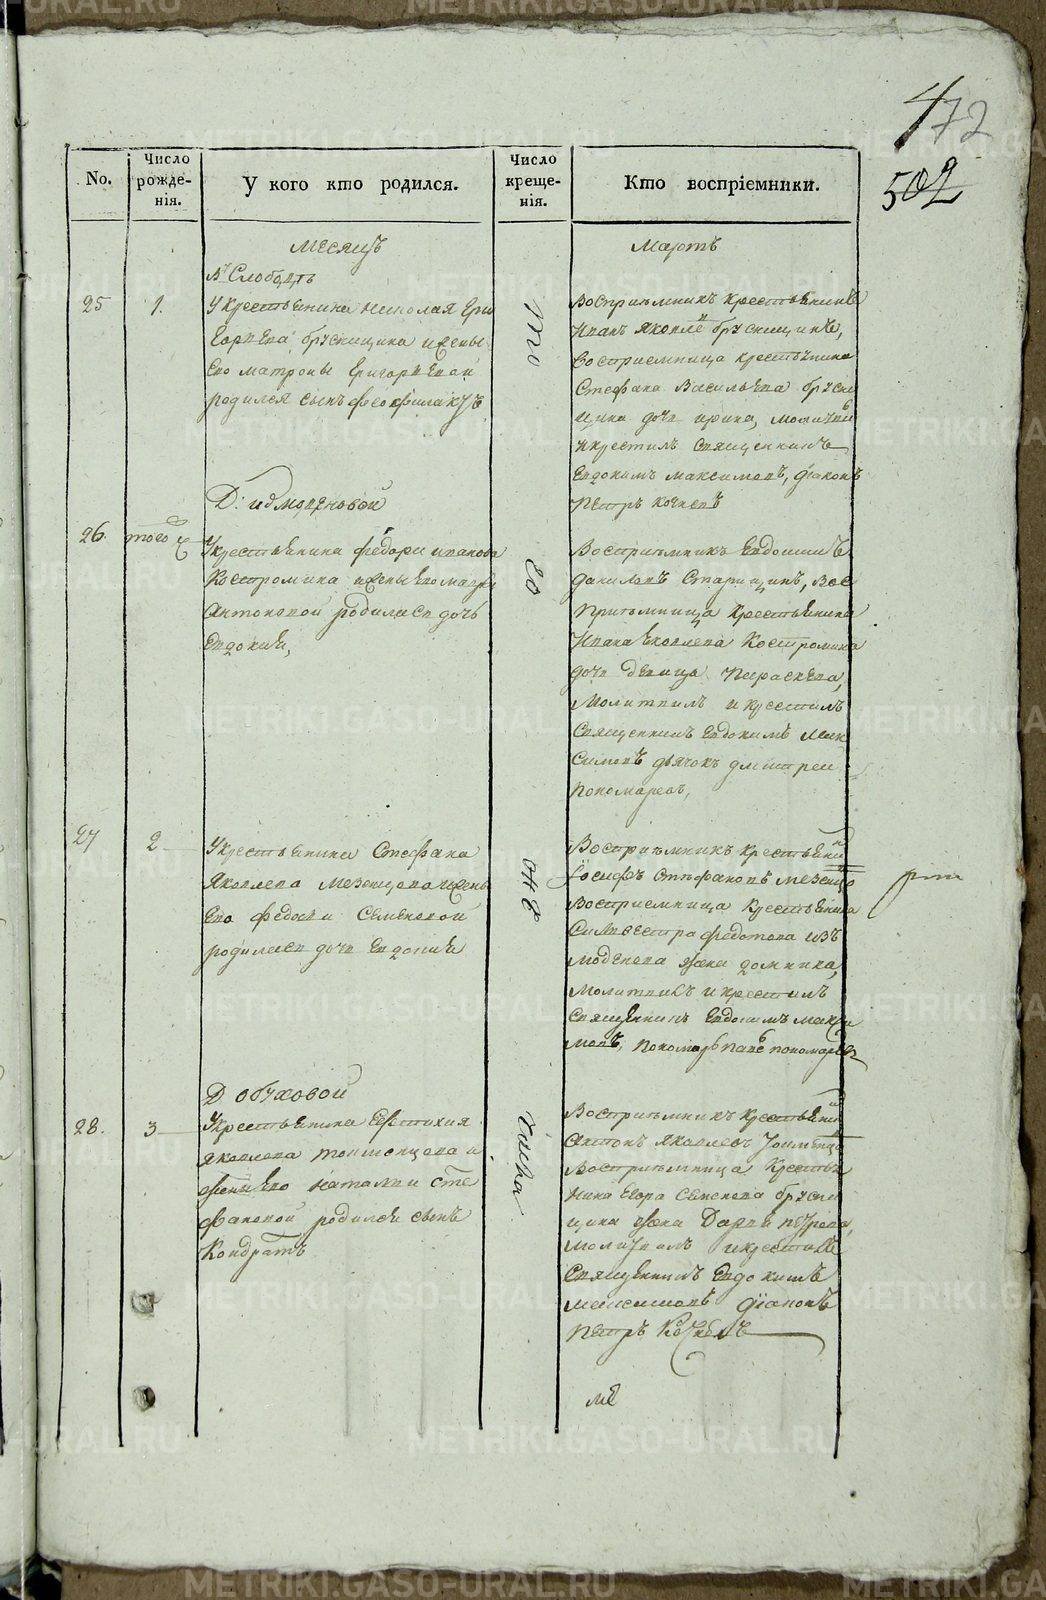 472
502
No.
Число рожде-нія.
У кого кто родился.
Число креще-нія.
Кто воспріемники.
Месяцъ
Мартъ
Въ Слободѣ
25
1.
У крестьянина Николая Гри
горьева брускицина и жены
его матроны григорьевой
родился сынъ феофилактъ
Восприемникъ крестьянинъ
Иванъ Яковле брускицинъ,
восприемница крестьянина
Стефана Васильева бруски
цына дочь ирина, молитвил
и крестилъ священникъ
Евдокимъ максимовъ, діаконъ
Петръ кочневъ
26.
того
У крестьянина федора иванова
Костромина и жены его
Антоновой родилась дочь
Евдокия,
Восприемникъ Евдокимъ
даниловъ Старицинъ, вос
приемница крестьянина
Ивана Яковлева Костромина
дочь девица Параскева,
молитвилъ и крестилъ
Священникъ Евдокимъ Мак
симовъ дьячокъ дмитреи
пономаревъ,
27
2
У крестьянина Стефана
Яковлева Мезенцова и жены
Его федосьи Семеновой
родилась дочь Евдокия
Восприемникъ крестьянин
Іосифъ Стефановъ мезенцо
восприемница крестьянина
Сильвестра федотова из
моденова жена домника,
молитвилъ и крестилъ
Священникъ Евдокимъ макси
мовъ, пономарь пономаревъ
Д. обуховой
28.
3
У крестьянина Евстихия
Яковлева и
жены его наталии сте
фановой родился сынъ
Кондратъ
Восприемникъ крестьянин
Антонъ Яковлевъ
Восприемница крестья
нина Егора Семенова бруски
цина жена Дарья петрова,
молитвилъ и крестилъ
Священникъ Евдокимъ
максимовъ діаконъ
петръ Кочневъ
ме
METRIKI.GASO-URAL.RU